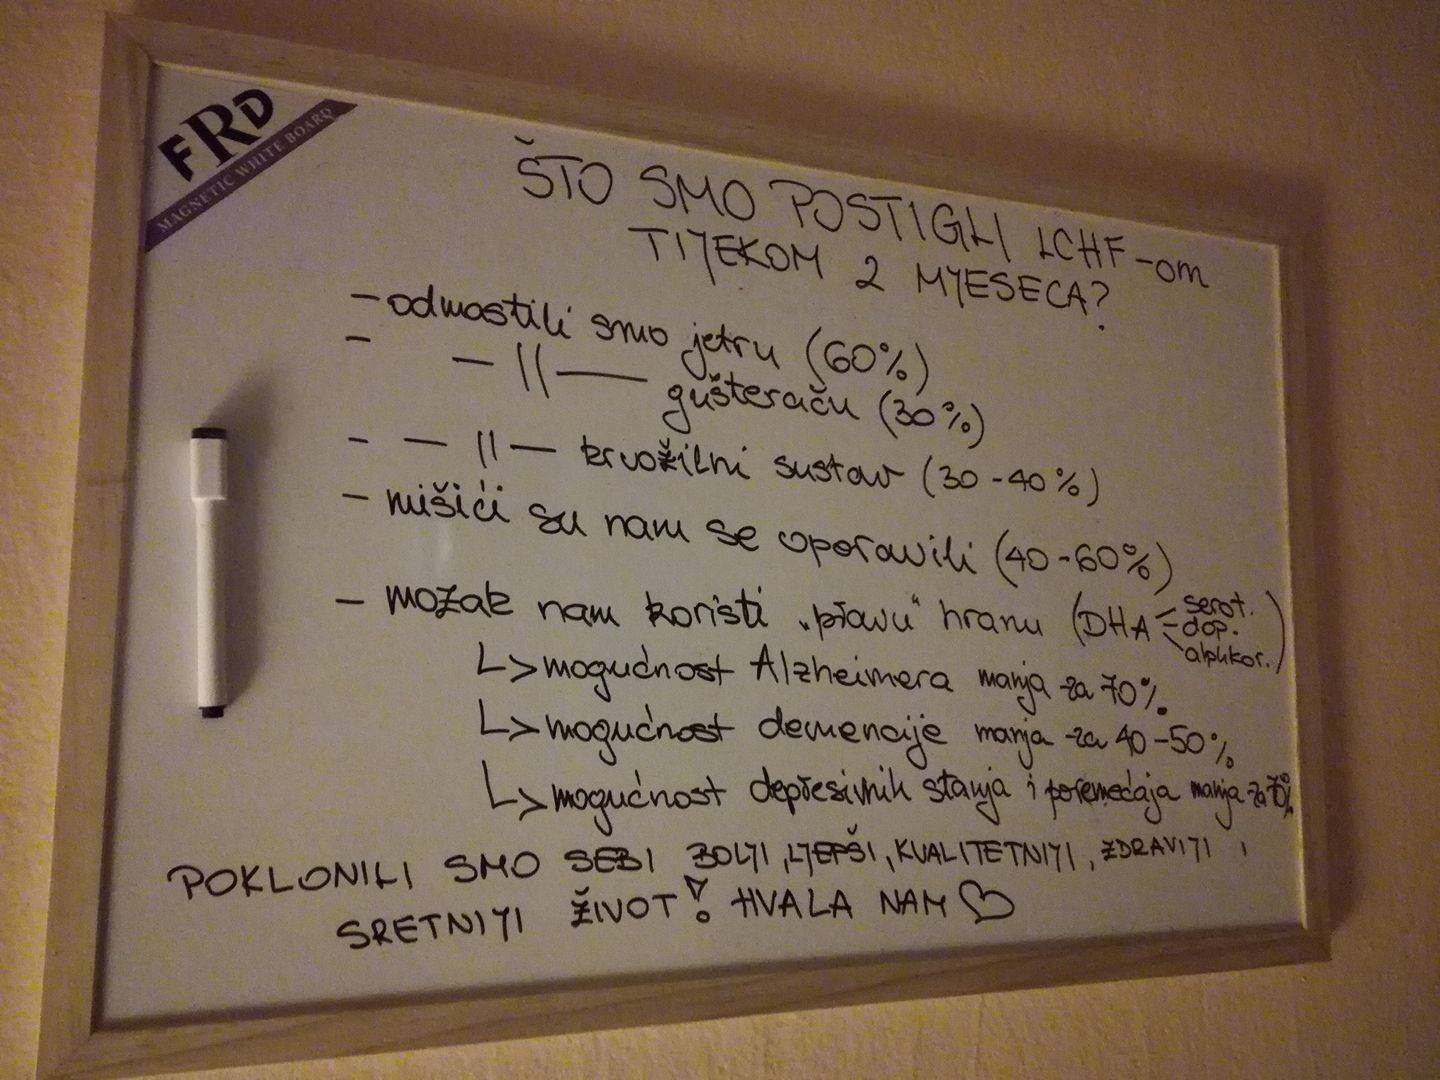 FRD
MAGNETIC WHITE BOARD
ŠTO SMO POSTIGLI LCHF-om
TIJEKOM 2 MJESECA?
- odmastili smo jetru (60%)
- — || — gušteraču (30%)
- — || — krvožilni sustav (30-40%)
- mišići su nam se oporavili (40-60%)
- mozak nam koristi „pravu“ hranu (DHA - serot.
- dop.
- alphkor.)
↳ mogućnost Alzheimera manja za 70%.
↳ mogućnost demencije manja za 40-50%.
↳ mogućnost depresivnih stanja i poremećaja manja za 70%
POKLONILI SMO SEBI BOLJI, LJEPŠI, KVALITETNIJI, ZDRAVIJI I
SRETNIJI ŽIVOT! HVALA NAM ♡